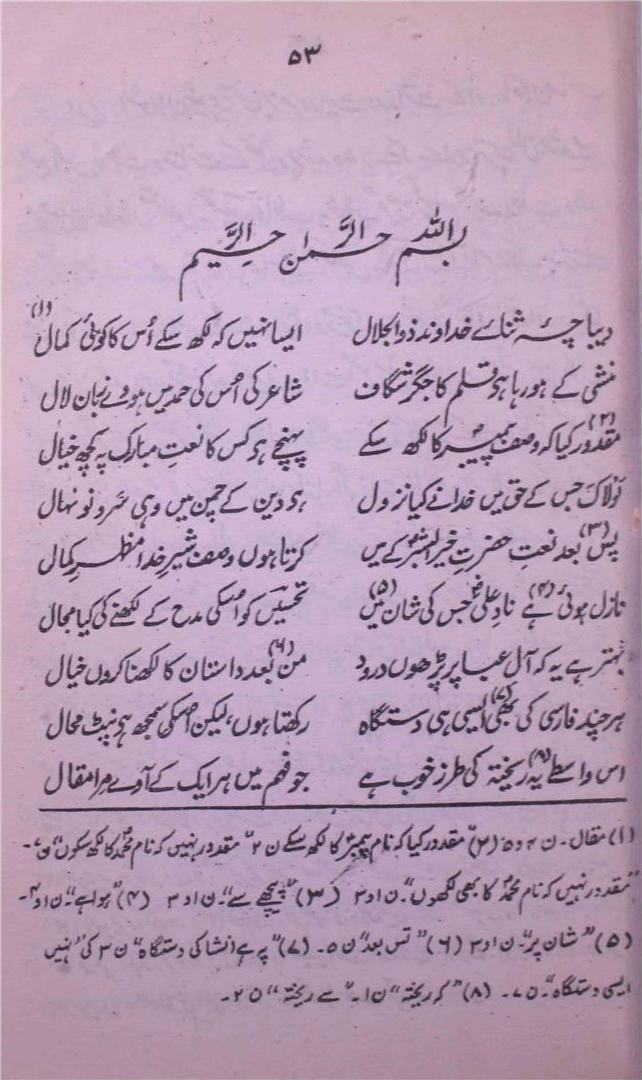 ۵۳
بسم اللہ الرحمٰن الرحیم
دیباچۂ ثنائے خداوند ذوالجلال ایسا نہیں کہ لکھ سکے اُس کا کوئی کمال (۱)
منشی کے ہو رہا ہو قلم کا جگر شگاف شاعر کی اُس کی حمد میں ہووے زبان لال
مقدور کیا کہ وصف پیمبر کا لکھ سکے (۲) پہنچے ہو کس کا نعتِ مبارک پہ کچھ خیال
لولاک جس کے حق میں خدا نے کیا نزول ہی دین کے چمن میں وہی سرو نونہال
پس (۳) بعد نعتِ حضرتِ خیر البشر کے میں کرتا ہوں وصف شیرِ خدا مظہرِ کمال
نازل ہوئی ہے (۴) نادِ علیؑ جس کی شان میں (۵) تحسیں کو اسکی مدح کے لکھنے کی کیا مجال
بہتر ہے یہ کہ آلِ عبا پر پڑھوں درود من بعد (۶) داستان کا لکھنا کروں خیال
ہر چند فارسی کی بھی (۷) ایسی ہی دستگاہ رکھتا ہوں، لیکن اسکی سمجھ ہو نپٹ محال
اس واسطے یہ (۸) ریختہ کی طرز خوب ہے جو فہم میں ہر ایک کے آوے مرا مقال
(۱) مقال۔ ن ۴ و ۵ (۲) "مقدور کیا کہ نام پیمبر کا لکھ سکے ن ۲" مقدور نہیں کہ نام محمدؐ کا لکھ سکوں" ن ۷۔
"مقدور نہیں کہ نام محمدؐ کا بھی لکھوں"۔ ن ا و ۳ (۳) "پیچھے سے"۔ ن ا و ۳ (۴) "ہوا ہے"۔ ن ا و ۴۔
(۵) "شان پر"۔ ن ا و ۳ (۶) "تس بعد" ن ۵۔ (۷) "پر ہے انشا کی دستگاہ" ن ۳ کی "نہیں
ایسی دستگاہ"۔ ن ۷۔ (۸) "کہ ریختہ" ن ۱۔ "سے ریختہ" ن ۲۔